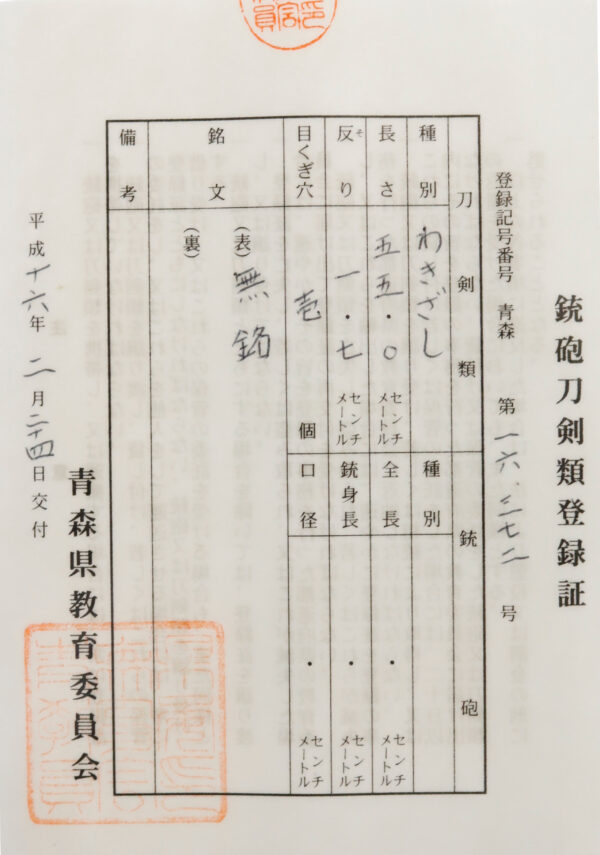 銃砲刀剣類登録証
登録記号番号 青森 第一六、三七二号
刀剣類
銃砲
種別 わきざし
種別
長さ 五五・〇センチメートル
全長 ・ センチメートル
反り 一・七センチメートル
そ
銃身長 ・ センチメートル
目くぎ穴 壱個
口径 ・ センチメートル
銘文 (表)無銘
(裏)
備考
平成十六年二月二十四日交付
青森県教育委員会